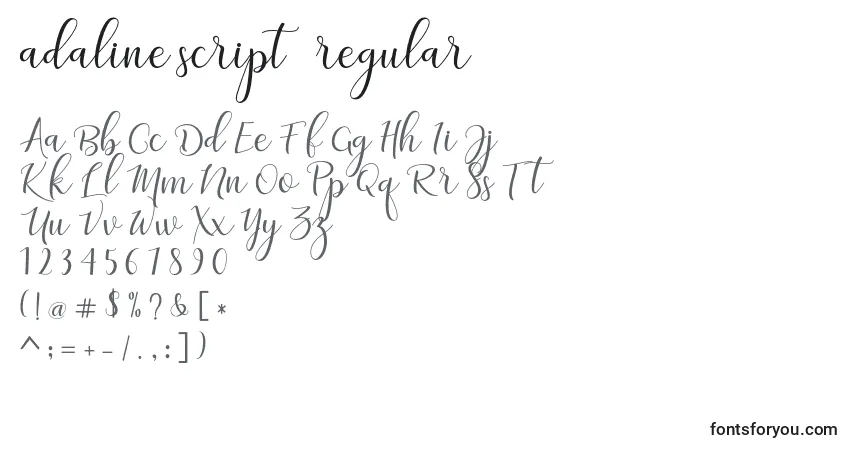 adaline script regular
Aa Bb Cc Dd Ee Ff Gg Hh Ii Jj
Kk Ll Mm Nn Oo Pp Qq Rr Ss Tt
Uu Vv Ww Xx Yy Zz
1 2 3 4 5 6 7 8 9 0
( ! @ # $ % ? & [ *
^ ; = + - / . , : ] )
fontsforyou.com